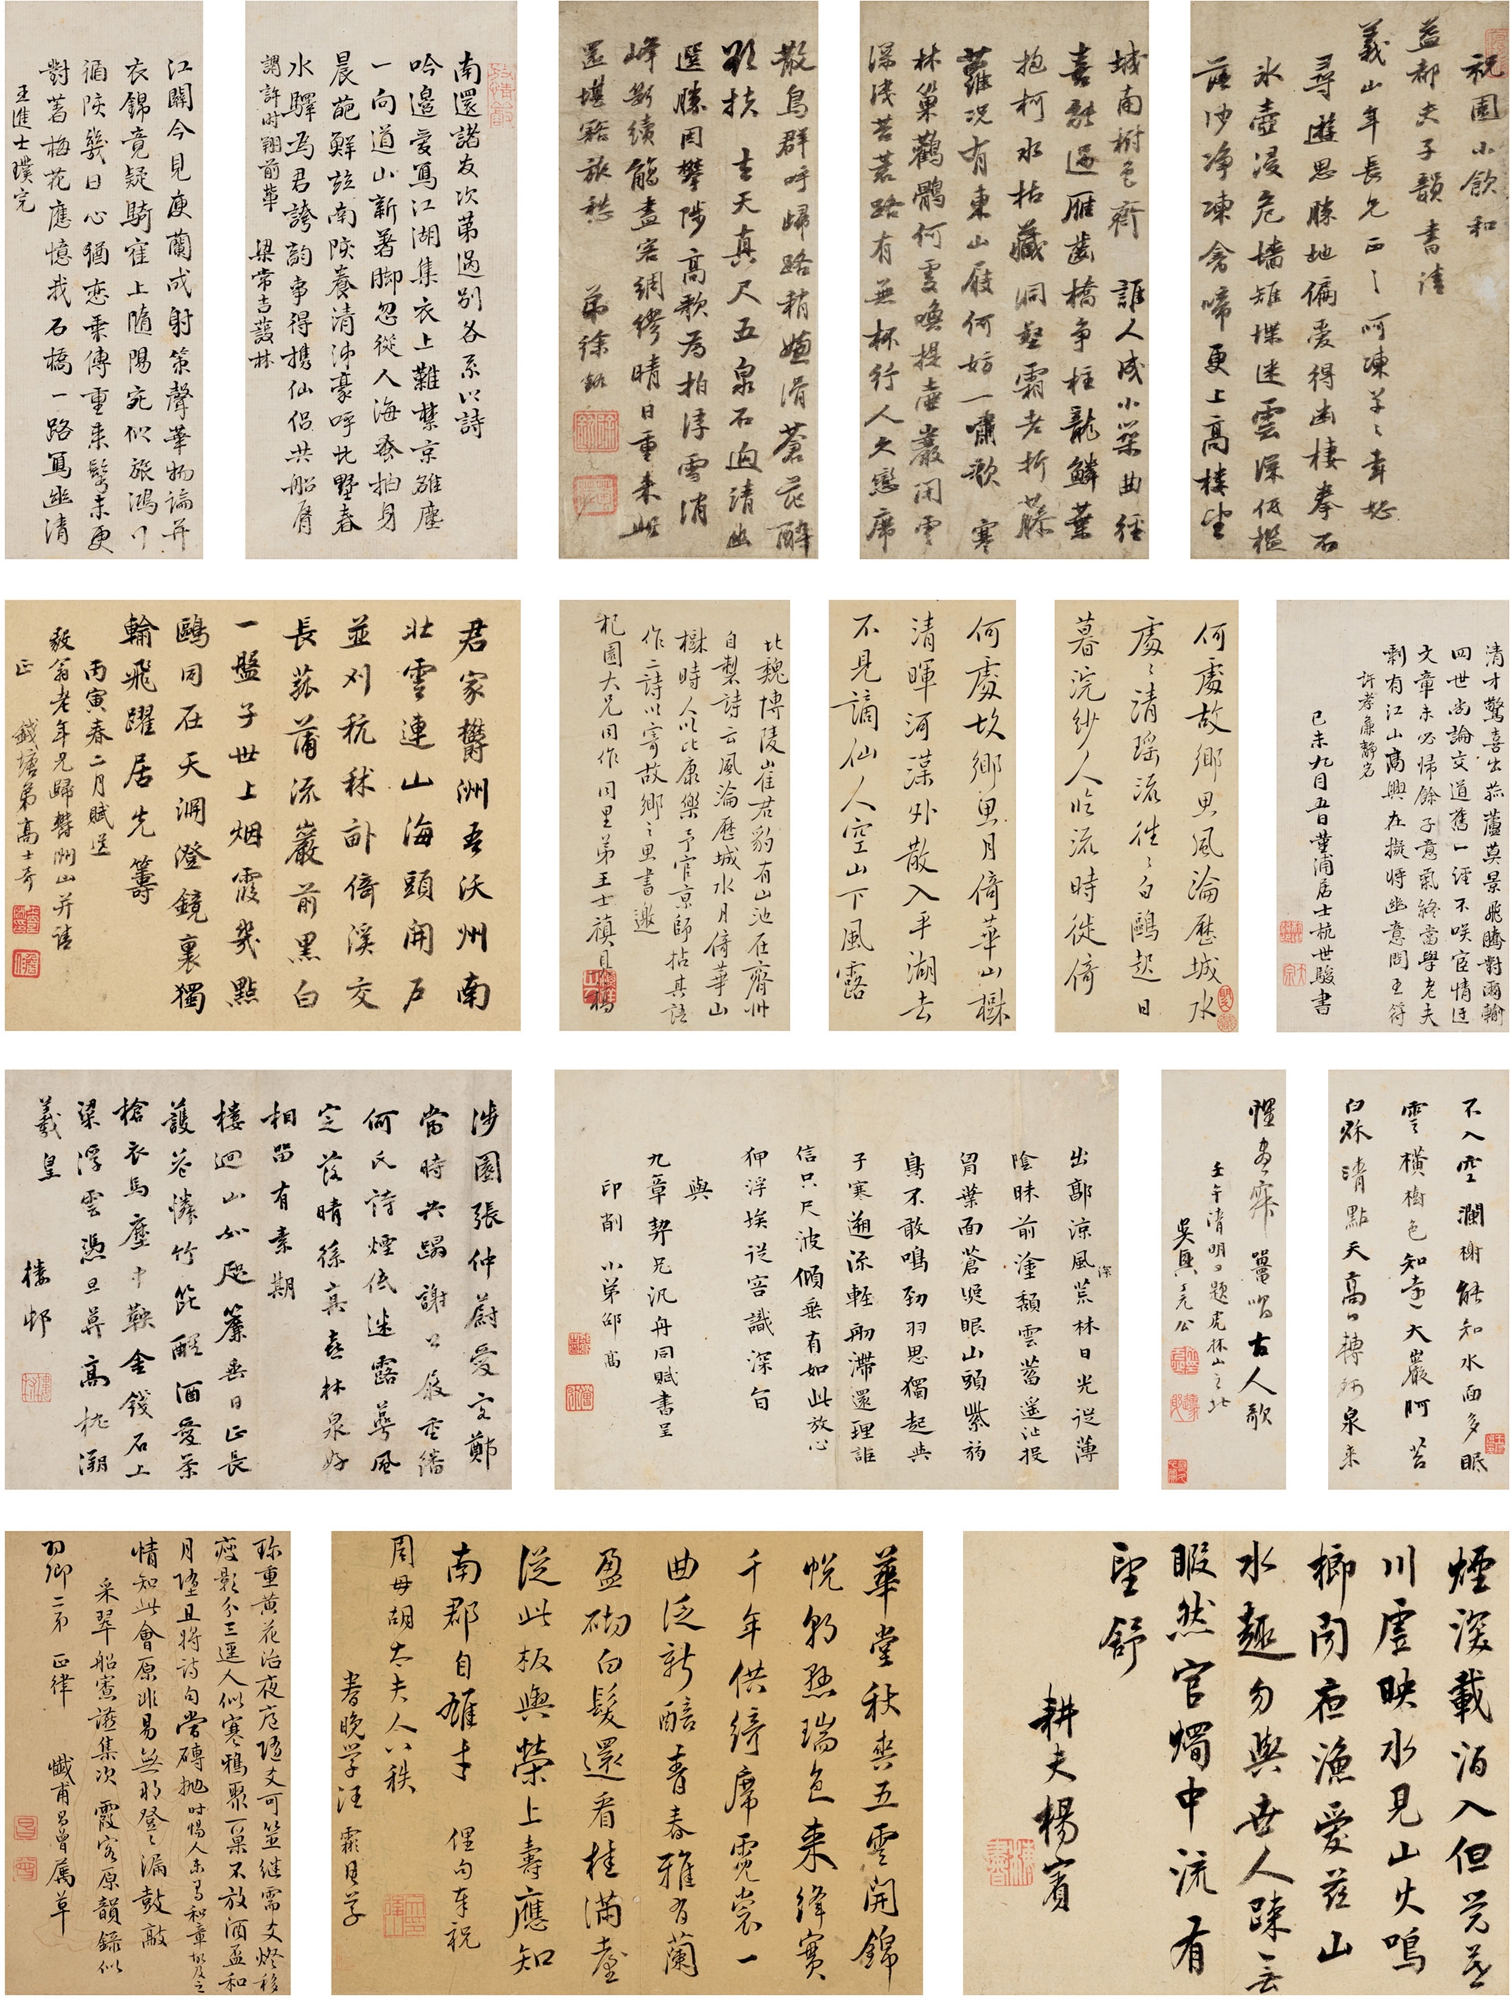 祝園小飲和
益都夫子韻書請
義山年長兄正之呵凍草草幸恕
尋遊思勝地偏愛得幽棲拳石
氷壺浸危墻雉堞迷雲深低檻
落沙净凍禽啼更上高樓望
城南樹色齊 誰人成小築曲徑
喜能過雁齒橋爭柱龍鱗葉
抱柯水枯藏洞壑霜老折藤
蘿況有東山屐何妨一嘯歌 寒
林巢鸛鶴何處喚提壺巖閒雲
深淺苔荒路有無杯行人久戀席
散鳥群呼歸路稍嫌滑蒼茫醉
欲扶 去天真尺五泉石迥清幽
選勝因攀陟高歌為拍浮雪消
峰斷續觴盡客綢繆晴日重來此
還堪豁旅愁 弟徐釚
南還諸友次第過別各系以詩
吟邊愛寫江湖集衣上難禁京雒塵
一向道山新著腳忽從人海乍抽身
晨葩鮮並南陔養清沛豪呼北墅春
水驛為君誇韵事得携仙侶共船脣
謂許时翔前輩 梁常吉薲林
江關今見庾蘭成射策聲華物論并
衣錦竟疑騎隺上隨陽宛似旅鴻行
循陔幾日心猶戀乘傳重來髩未更
對著梅花應憶我石橋一路寫幽清
王進士璞完
清才驚喜出菰蘆莫景飛騰對爾翰
四世尚論交道舊一經不咲宦情迂
文章未必歸餘子意氣終當學老夫
剩有江山高興在擬將幽意問王符
許孝廉靜名
己未九月五日堇浦居士杭世駿書
何處故鄉思風淪歷城水
處處清瑤流往往白鷗起日
暮浣紗人臨流時徙倚
何處故鄉思月倚華山樹
清暉河漢外散入平湖去
不見謫仙人空山下風露
北魏博陵崔君豹有山池在齊州
自製詩云風淪歷城水月倚華山
樹時人以比康樂予官京師拈其語
作二詩以寄故鄉之思書邀
杞園大兄同作 同里弟王士禛具稿
君家欝洲吾沃州南
北雲連山海頭開戶
並刈秔秫畝倚溪交
長菰蒲流巖前黑白
一盤子世上烟霞幾點
鷗同在天淵澄鏡裏獨
輪飛躍居先籌
丙寅春二月賦送
毅翁老年兄歸欝洲山并請
正 錢塘弟高士奇
不入空瀾榭能知水面多眠
雲橫樹色知遠大巖阿苔
白猕清點天高白轉泉来
惺惠寐罨唱古人歌
壬午清明日題虎林山之北
吳興丁元公
出郭涼風荒林日光從薄
深
陰昧前塗頹雲蓄遥沚投
胃葉面蒼煲眼山頭紫葯
鳥不敢鳴勁羽思獨起與
子寒遡流輕舠滯還理詎
信只尺波傾垂有如此放心
狎浮埃從容識深旨
與
九章契兄汎舟同賦書呈
印削 小弟邵
涉園張仲蔚愛文鄭
當時共躡謝公屐重繙
何氏詩煙低迷露蕚風
定落晴絲真喜林泉好
相畱有素期
樓迴山如咫簾垂日正長
護花憐竹筂醒酒愛茶
槍衣馬塵中鞅金錢石上
梁浮雲憑旦莫高枕溯
羲皇 樓邨
煙深載酒入但覺暮
川虛映水見山火鳴
榔聞夜漁愛茲山
水趣勿與世人踈無
暇然官燭中流有
望舒
耕夫楊賓
華堂秋爽五雲開錦
帨朝懸瑞色來絳實
千年供綺席霓裳一
曲泛新醅青春雅有蘭
盈砌白髮還看桂滿臺
從此板輿榮上壽應知
南郡自雄才 俚句奉祝
周母胡太夫人八秩
眷晚学汪霦具草
珎重黄花治夜庖随文可並继需文燈移
瘦影分三逕人似寒鴉聚一巢不放酒盃和
月墮且將詩句當磚抛
情知此會原非易無那登登漏鼓敲
采翠船窓讌集次霞客原韻録似
羽卿二弟 正律 懺甫吕曾属草